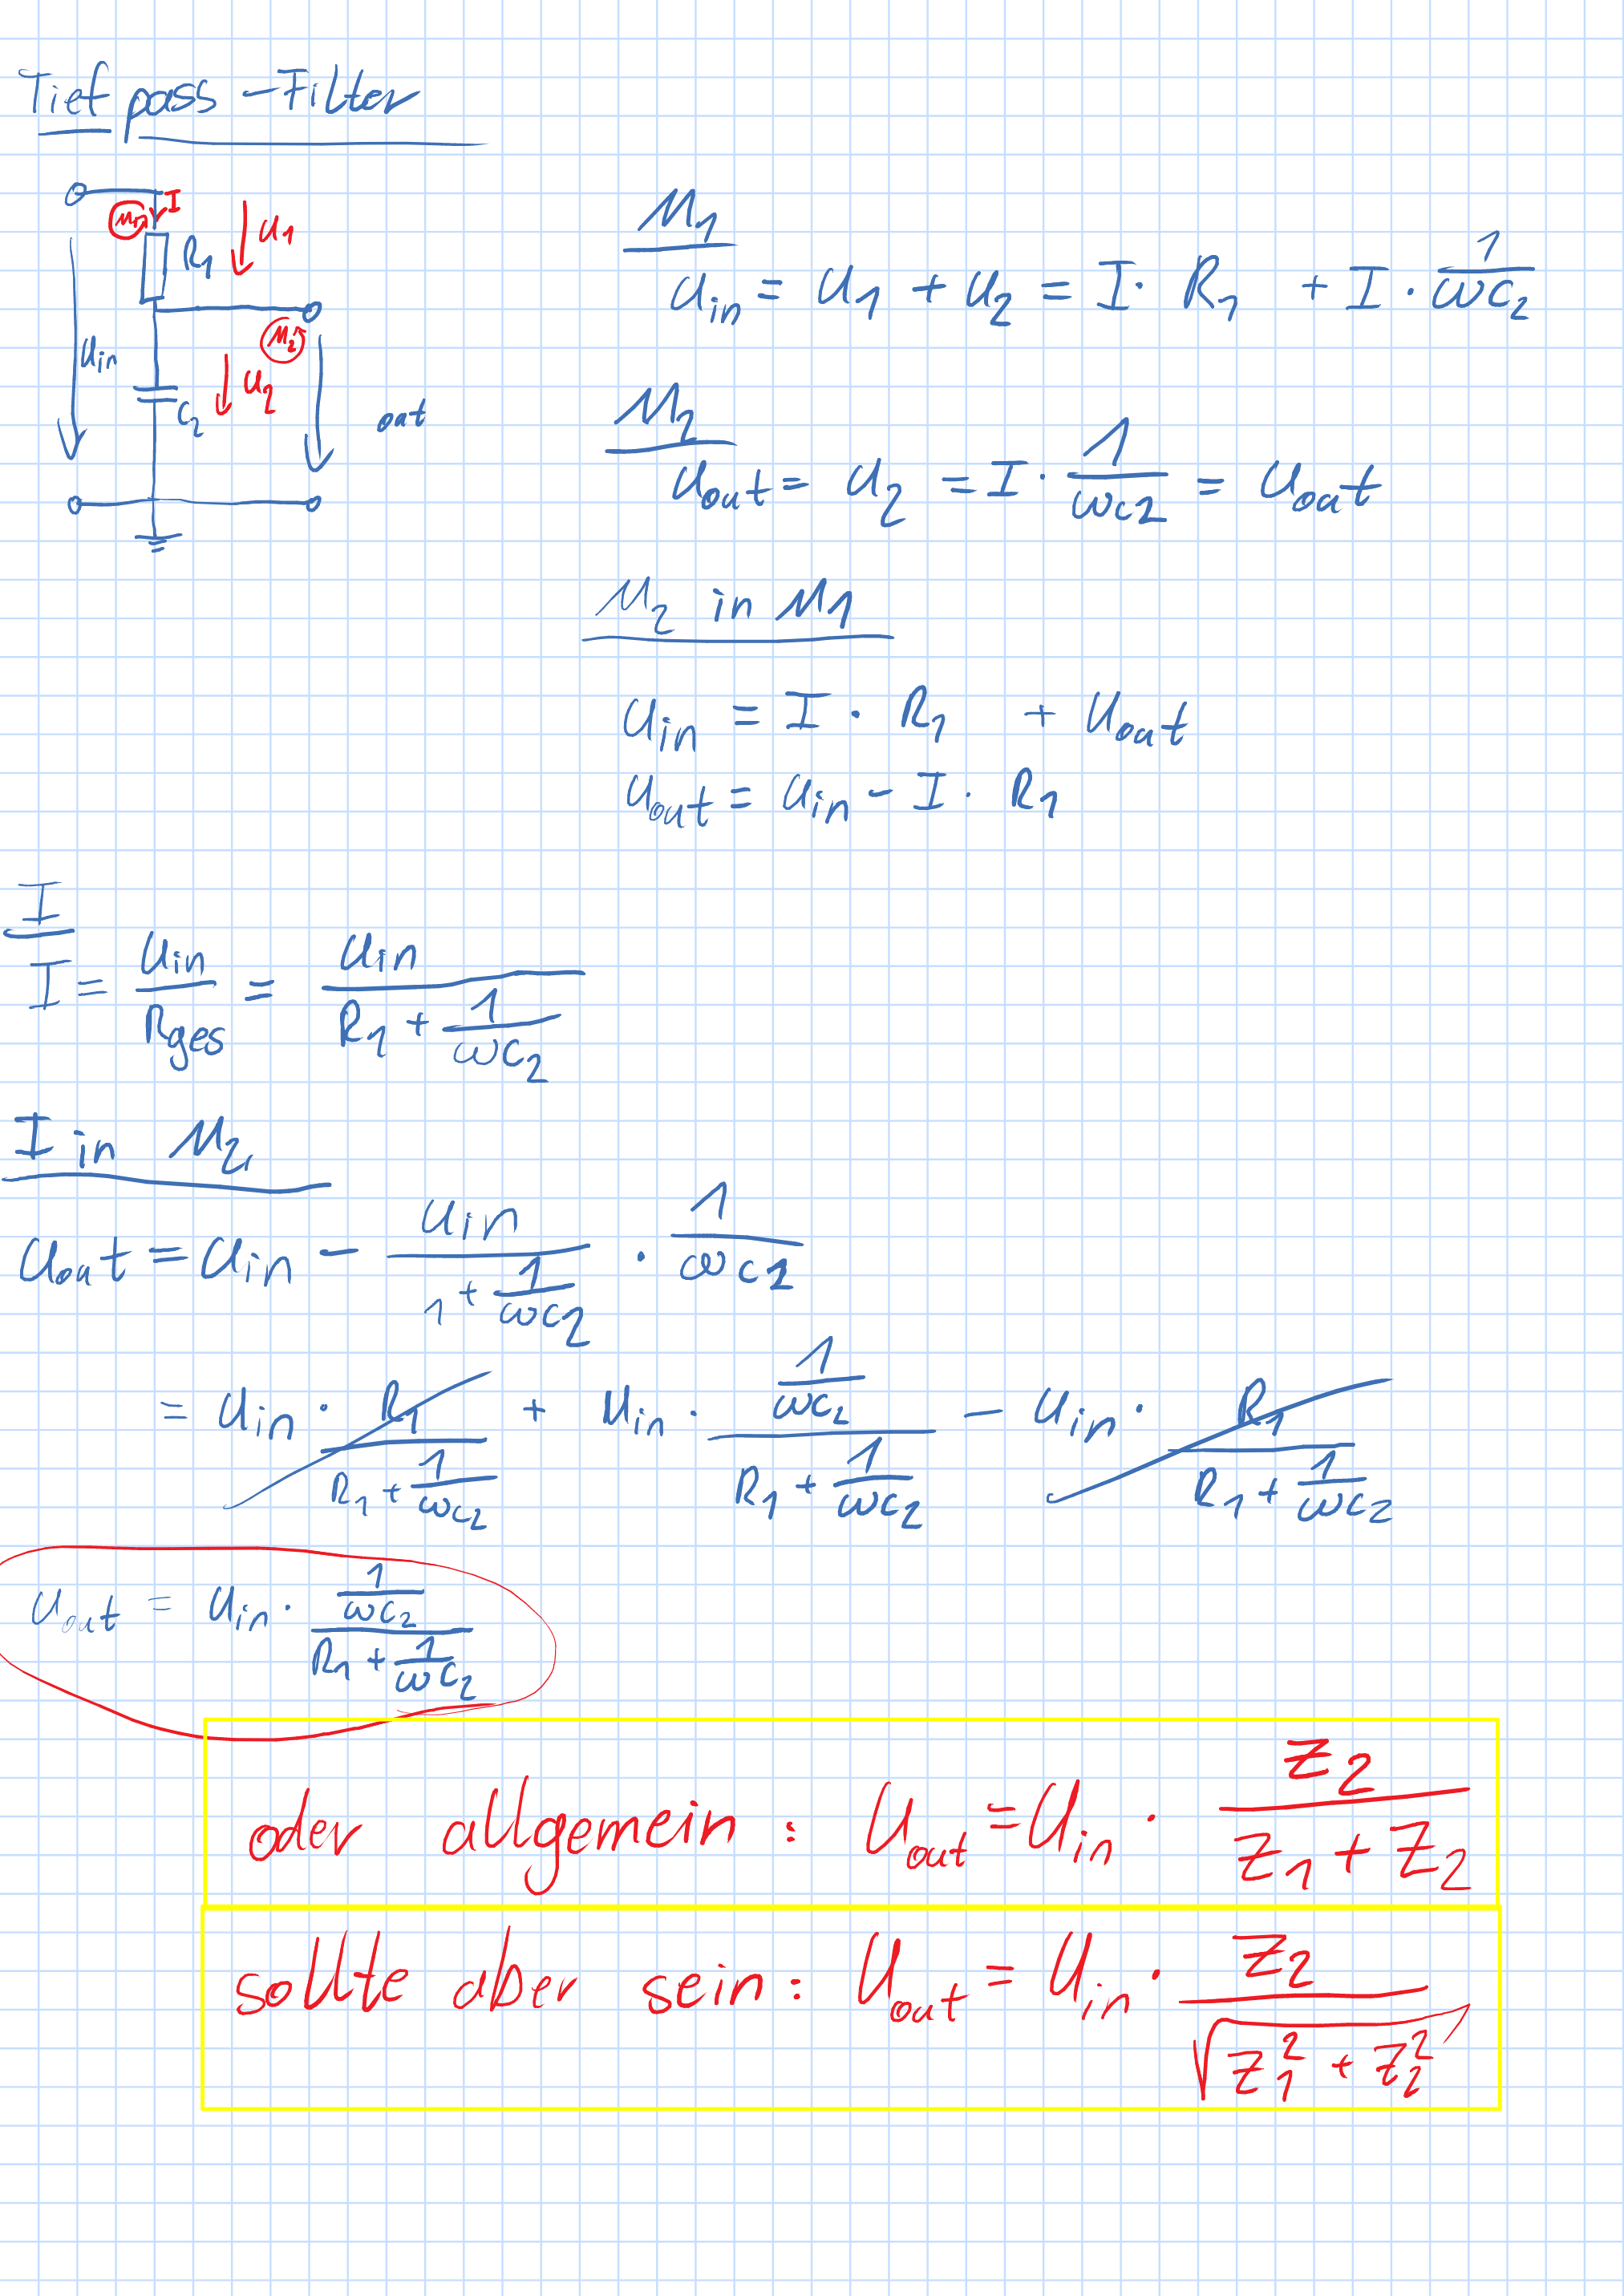 Tiefpass-Filter
M1 I
U1
R1
Uin
M2
U2
C2
out
M1
Uin = U1 + U2 = I · R1 + I · 1/ωC2
M2
Uout = U2 = I · 1/ωC2 = Uout
M2 in M1
Uin = I · R1 + Uout
Uout = Uin - I · R1
I
I = Uin/Rges = Uin/(R1 + 1/ωC2)
I in M2
Uout = Uin - Uin/(1 + 1/ωC2) · 1/ωC2
= Uin · R1/(R1 + 1/ωC2) + Uin · (1/ωC2)/(R1 + 1/ωC2) - Uin · R1/(R1 + 1/ωC2)
Uout = Uin · (1/ωC2)/(R1 + 1/ωC2)
oder allgemein: Uout = Uin · Z2/(Z1 + Z2)
sollte aber sein: Uout = Uin · Z2/√(Z1² + Z2²)